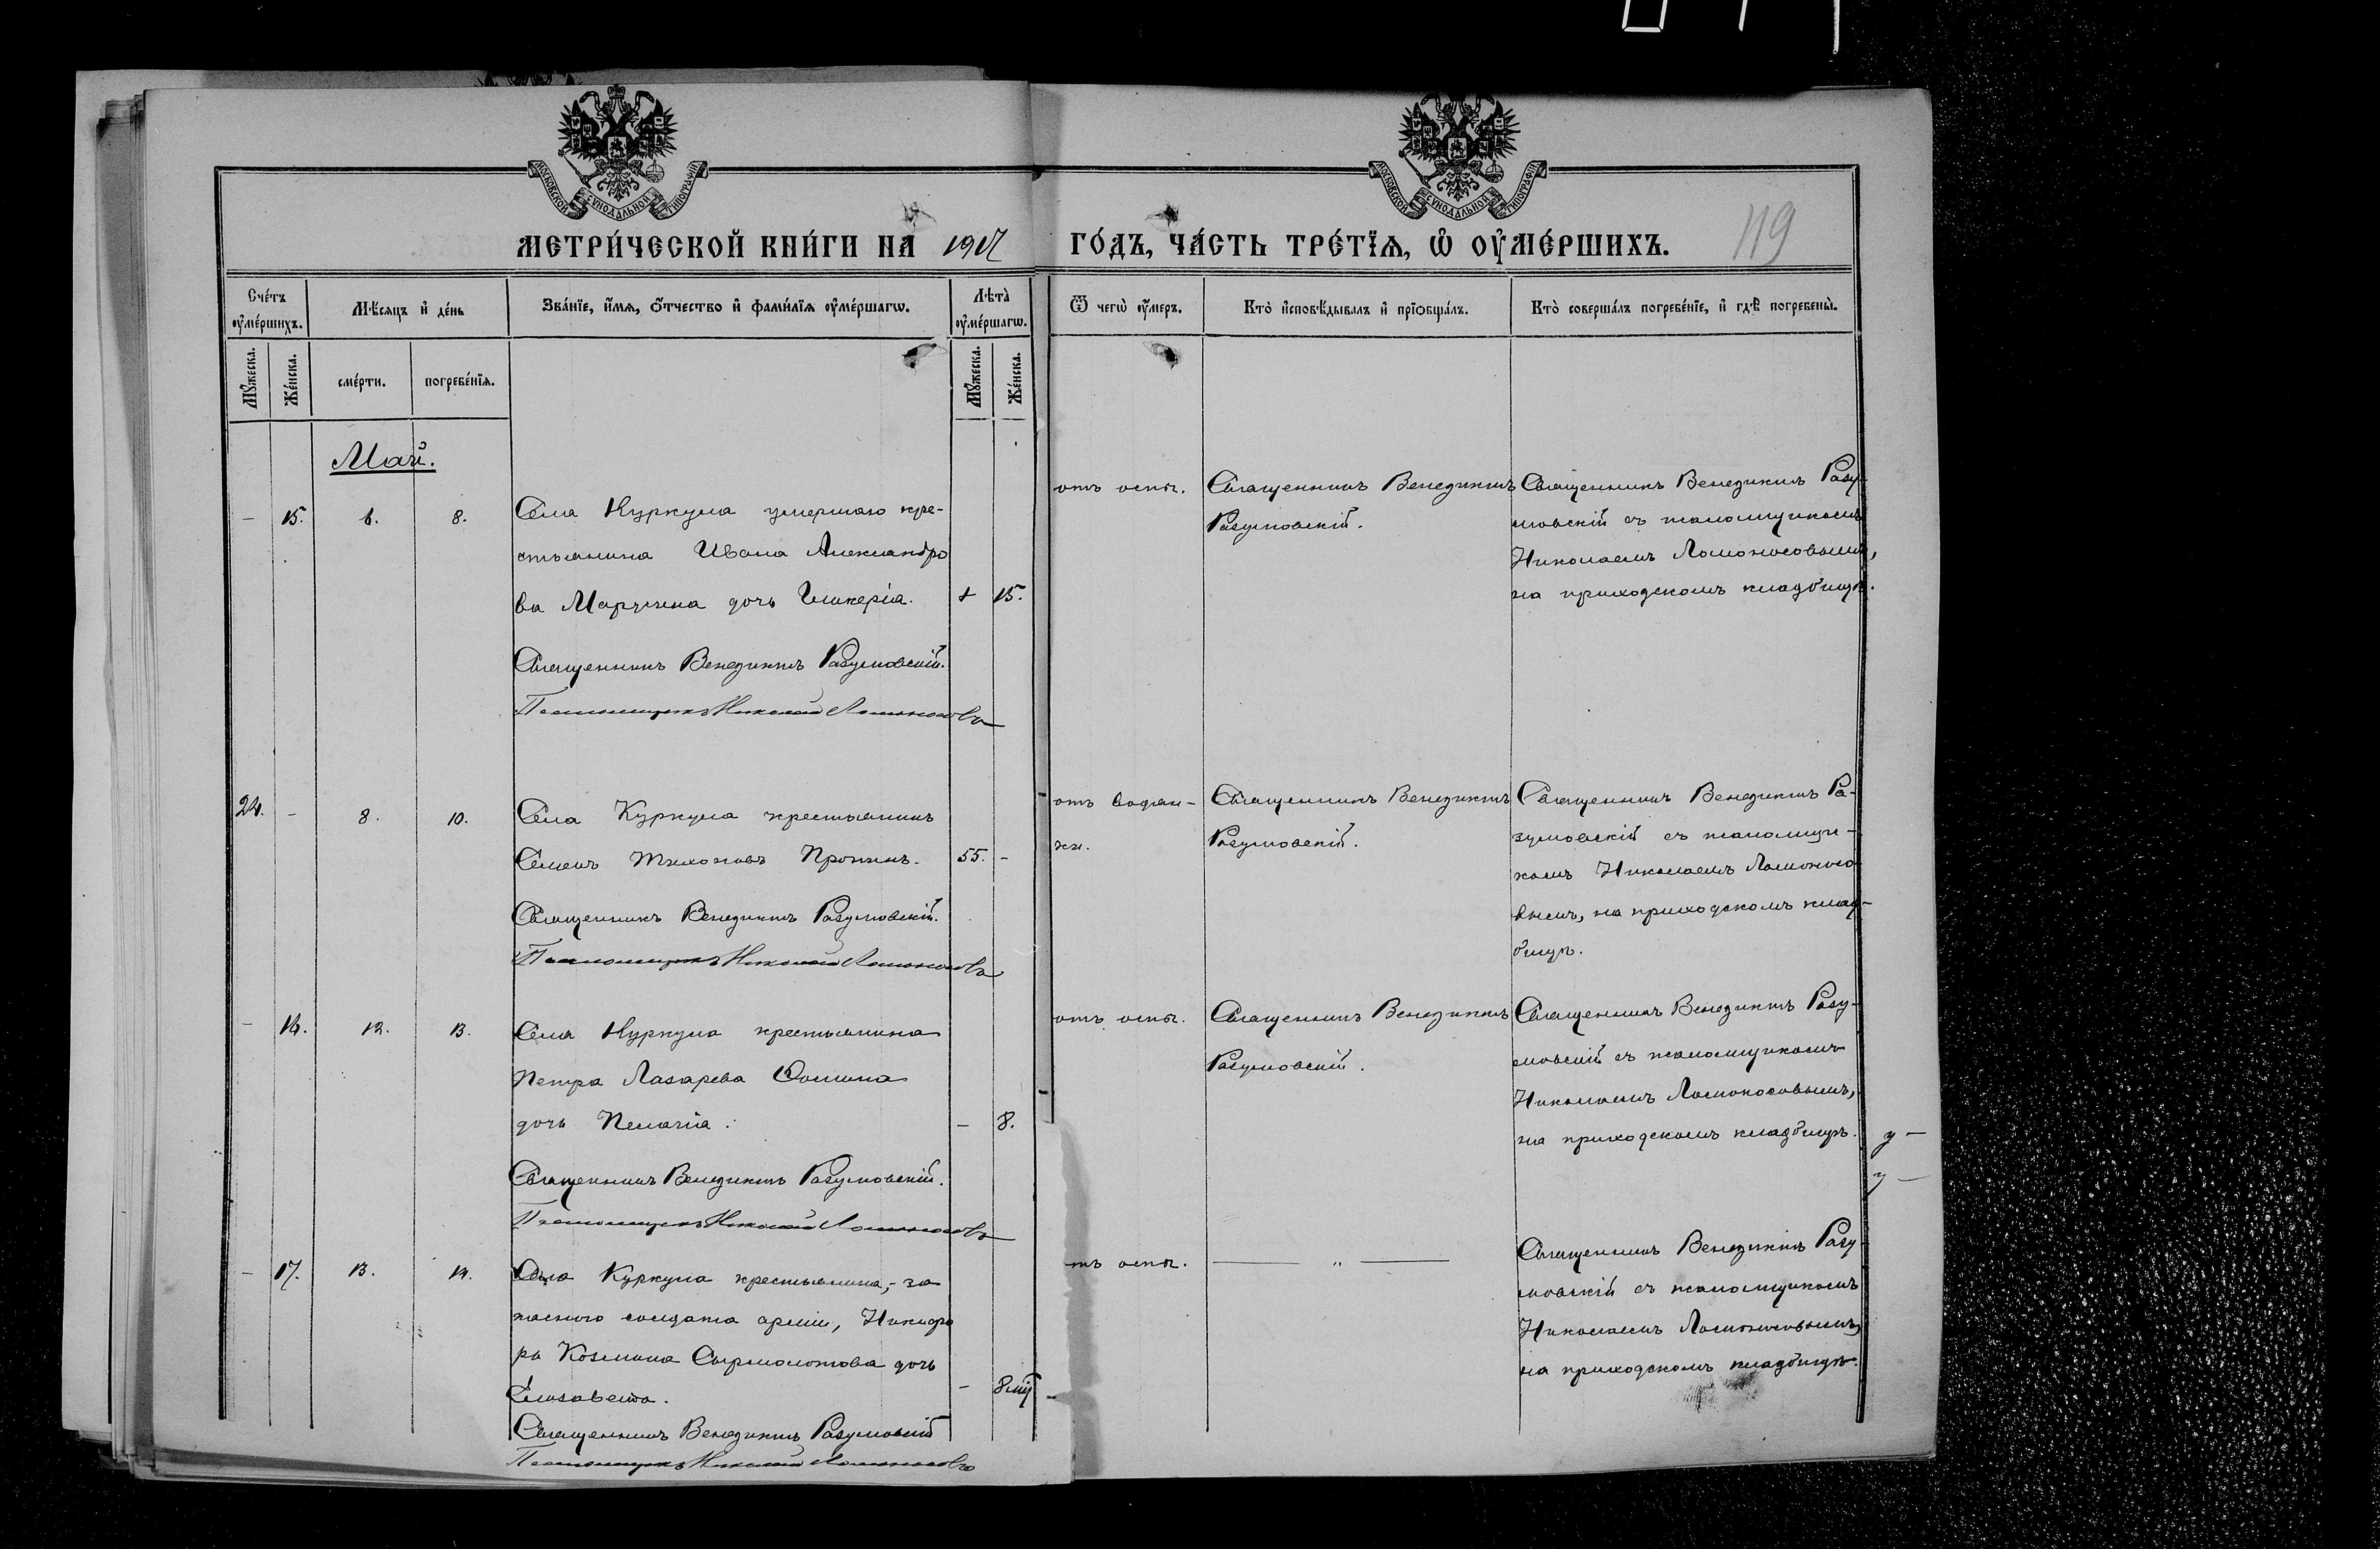 МОСКОВСКОЙ СѴНОДАЛЬНОЙ ТИПОГРАФІИ
МОСКОВСКОЙ СѴНОДАЛЬНОЙ ТИПОГРАФІИ
МЕТРИ́ЧЕСКОЙ КНИ́ГИ НА 1917 ГО́ДЪ, ЧА́СТЬ ТРЕ́ТЇѦ, Ѡ ОУ҆МЕ́РШИХЪ.
119
Сче́тъ оу҆ме́ршихъ.
Мѣ́сяцъ и҆ де́нь
Зва́нїе, и҆́мѧ, ѻ҆́тчество и҆ фами́лїѧ оу҆ме́ршагѡ.
Лѣ̀та̀ оу҆ме́ршагѡ.
Ѿ чегѡ̀ оу҆́меръ.
Кто̀ и҆сповѣ́дывалъ и҆ прїѡбща́лъ.
Кто̀ соверша́лъ погребе́нїе, и҆ гдѣ̀ погребены̀.
Мꙋ́жеска.
Же́нска.
сме́рти.
погребе́нїѧ.
Мꙋ́жеска.
Же́нска.
Май.
– 15. 6. 8.
Села Куркула умершаго кре-
стьянина Ивана Александро
ва Марушна дочь Гликерія. 15.
Священникъ Венедиктъ Разумовскій.
Псаломщикъ Николай Ломоносовъ
отъ оспы.
Священникъ Венедиктъ
Разумовскій.
Священникъ Венедиктъ Разу-
мовскій съ псаломщикомъ
Николаемъ Ломоносовымъ,
на приходскомъ кладбищѣ.
24. – 8. 10.
Села Куркула крестьянинъ
Семенъ Тихоновъ Пронинъ. 55. –
Священникъ Венедиктъ Разумовскій.
Псаломщикъ Николай Ломоносовъ
отъ водян-
ки.
Священникъ Венедиктъ
Разумовскій.
Священникъ Венедиктъ Ра-
зумовскій съ псаломщи-
комъ Николаемъ Ломоносо-
вымъ, на приходскомъ клад-
бищѣ.
– 16. 12. 13.
Села Куркула крестьянина
Петра Лазарева Ѳомина
дочь Пелагія. – 8.
Священникъ Венедиктъ Разумовскій.
Псаломщикъ Николай Ломоносовъ
отъ оспы.
Священникъ Венедиктъ
Разумовскій.
Священникъ Венедиктъ Разу-
мовскій съ псаломщикомъ
Николаемъ Ломоносовымъ,
на приходскомъ кладбищѣ.
– 17. 13. 14.
Села Куркула крестьянина, за
паснаго солдата арміи, Никифо
ра Козмина Сыромолотова дочь
Елизавета. – 8
Священникъ Венедиктъ Разумовскій
Псаломщикъ Николай Ломоносовъ
тъ оспы.
— „ —
Священникъ Венедиктъ Разу-
мовскій съ псаломщикомъ
Николаемъ Ломоносовымъ,
на приходскомъ кладбищѣ.